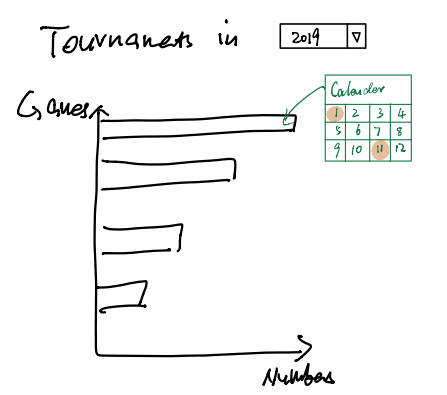 Tournaments in 2019
Games
Calender
1 2 3 4
5 6 7 8
9 10 11 12
Numbers